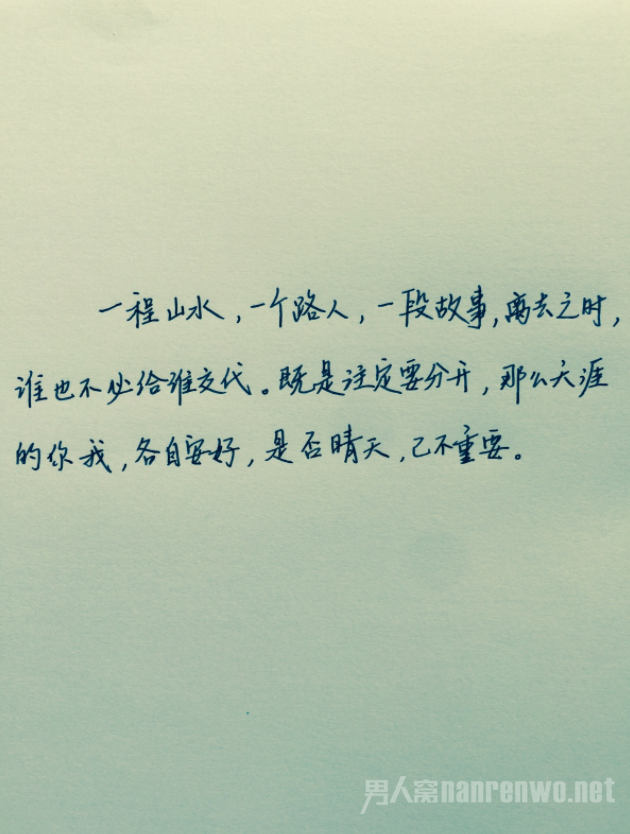 一程山水，一个路人，一段故事，离去之时，
谁也不必给谁交代。既是注定要分开，那么天涯
的你我，各自安好，是否晴天，已不重要。
男人窝nanrenwo.net